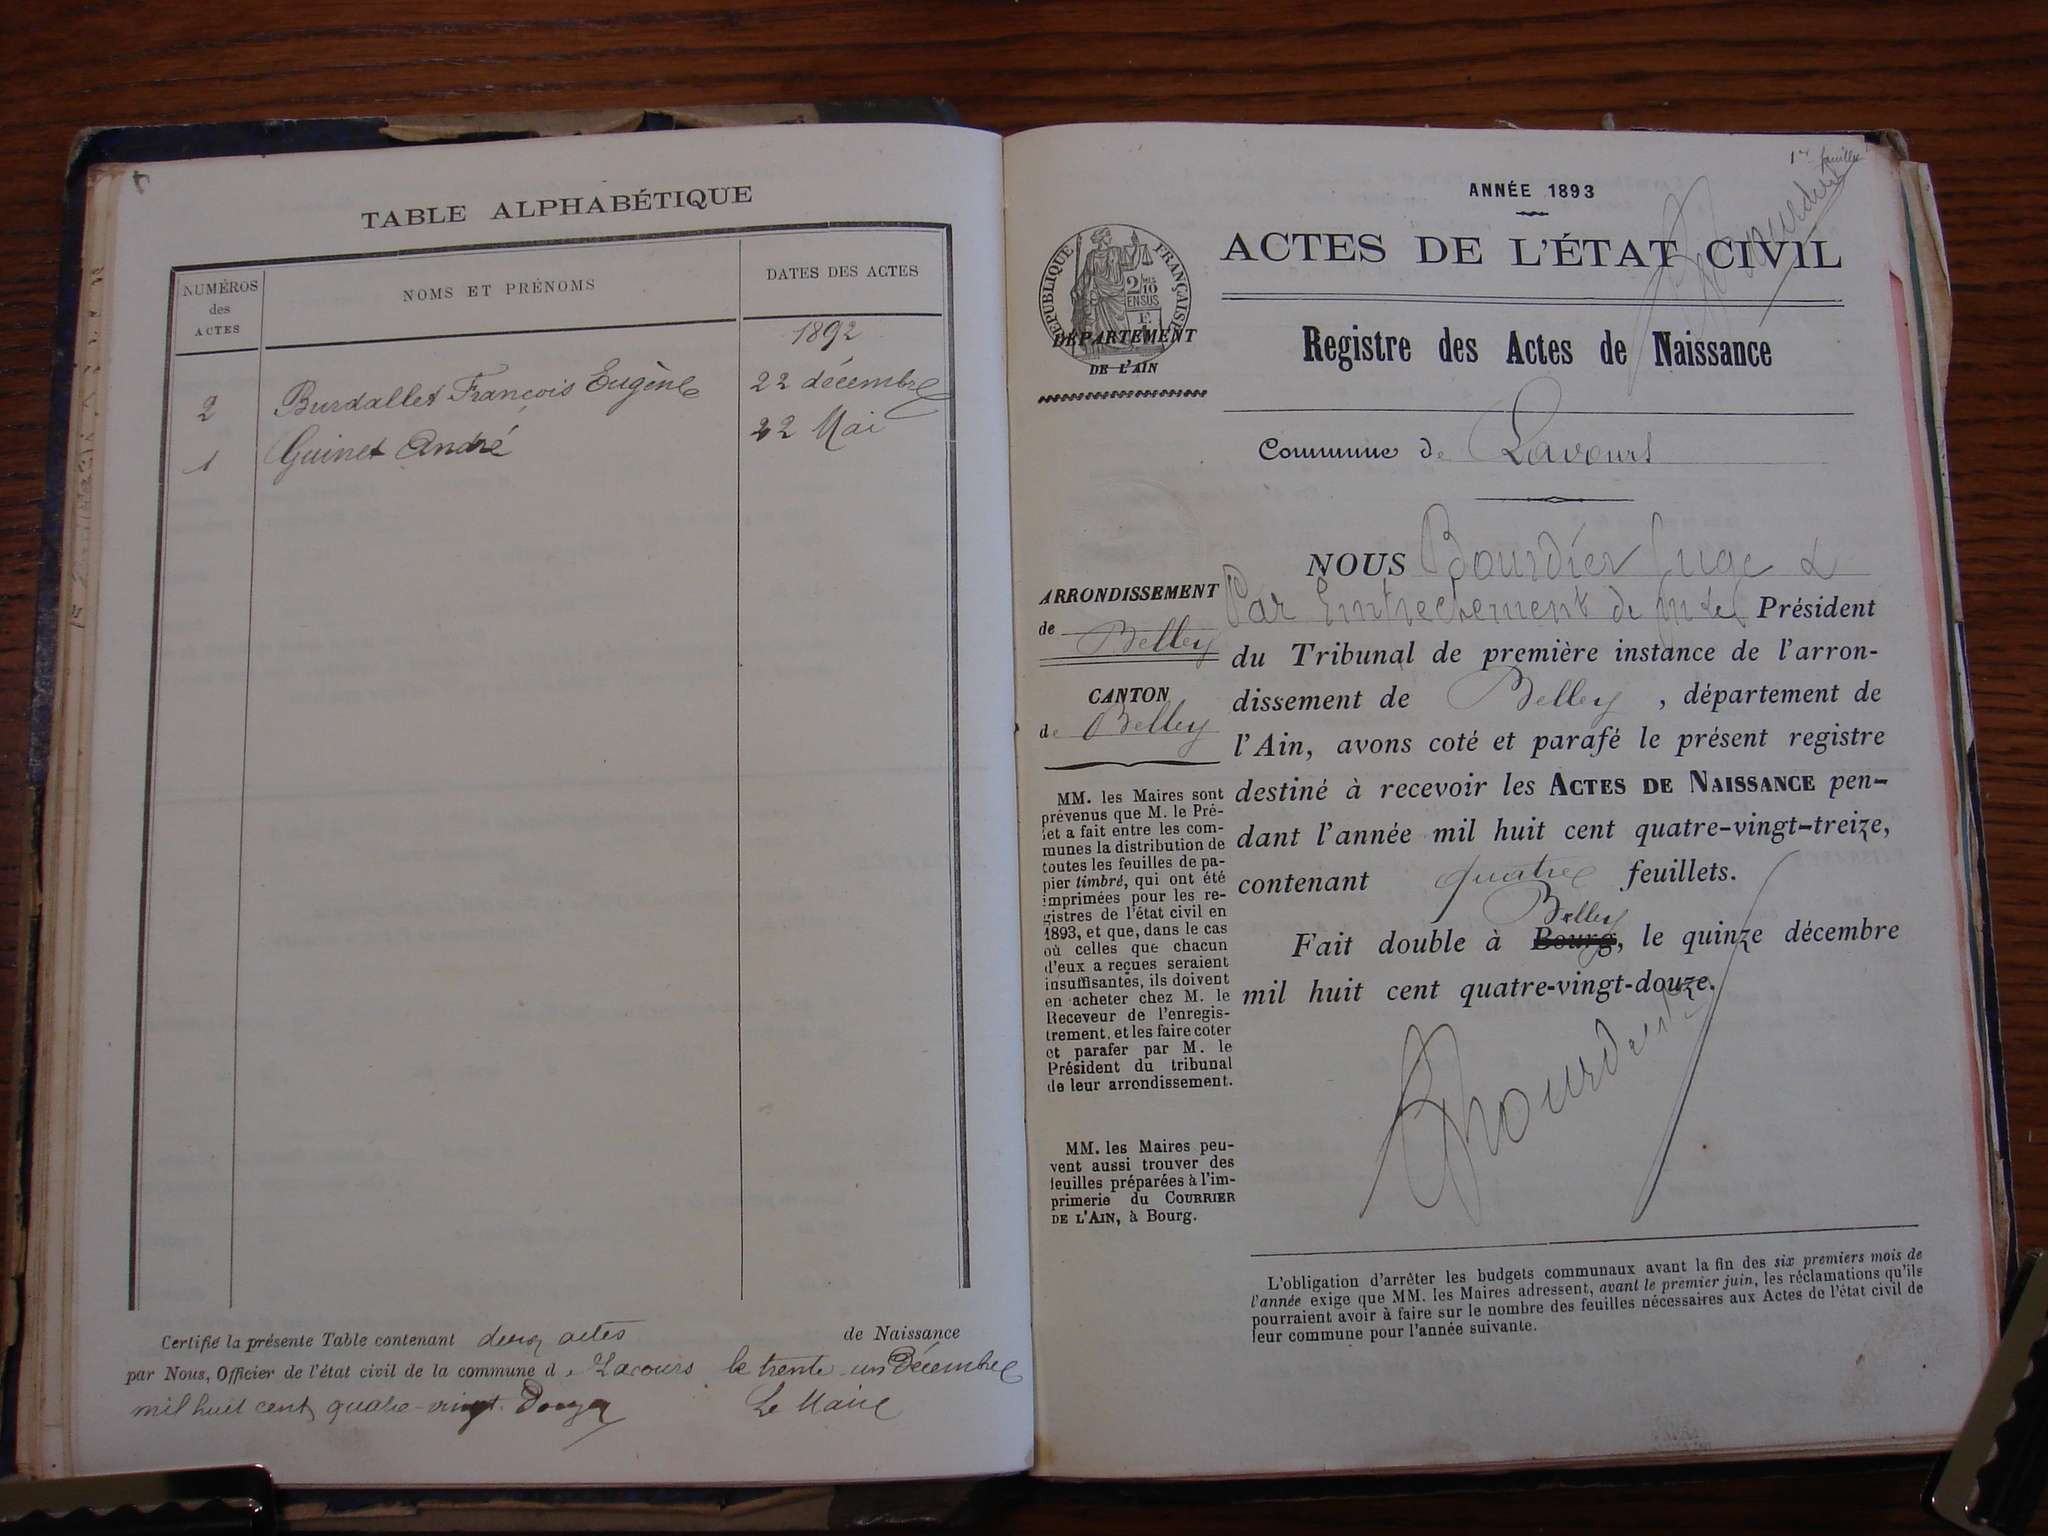 TABLE ALPHABÉTIQUE
NUMÉROS
des
ACTES
NOMS ET PRÉNOMS
DATES DES ACTES
1892
2 Burdallet François Eugène 22 décembre
1 Guinet André 22 Mai
Certifié la présente Table contenant deux actes de Naissance
par Nous, Officier de l'état civil de la commune de Lavours le trente-un Décembre
mil huit cent quatre-vingt-Douze Le Maire
1er feuillet
ANNÉE 1893
ACTES DE L'ÉTAT CIVIL
RÉPUBLIQUE FRANÇAISE
2/10
EN SUS
DÉPARTEMENT
DE L'AIN
Registre des Actes de Naissance
Commune de Lavours
ARRONDISSEMENT
de Belley
CANTON
de Belley
MM. les Maires sont
prévenus que M. le Pré-
fet a fait entre les com-
munes la distribution de
toutes les feuilles de pa-
pier timbré, qui ont été
imprimées pour les re-
gistres de l'état civil en
1893, et que, dans le cas
où celles que chacun
d'eux a reçues seraient
insuffisantes, ils doivent
en acheter chez M. le
Receveur de l'enregis-
trement, et les faire coter
et parafer par M. le
Président du tribunal
de leur arrondissement.
MM. les Maires peu-
vent aussi trouver des
feuilles préparées à l'im-
primerie du COURRIER
DE L'AIN, à Bourg.
NOUS Bourdier Juge
Par Empêchement de Président
du Tribunal de première instance de l'arron-
dissement de Belley, département de
l'Ain, avons coté et parafé le présent registre
destiné à recevoir les ACTES DE NAISSANCE pen-
dant l'année mil huit cent quatre-vingt-treize,
contenant quatre feuillets.
Belley
Fait double à Bourg, le quinze décembre
mil huit cent quatre-vingt-douze.
L'obligation d'arrêter les budgets communaux avant la fin des six premiers mois de
l'année exige que MM. les Maires adressent, avant le premier juin, les réclamations qu'ils
pourraient avoir à faire sur le nombre des feuilles nécessaires aux Actes de l'état civil de
leur commune pour l'année suivante.